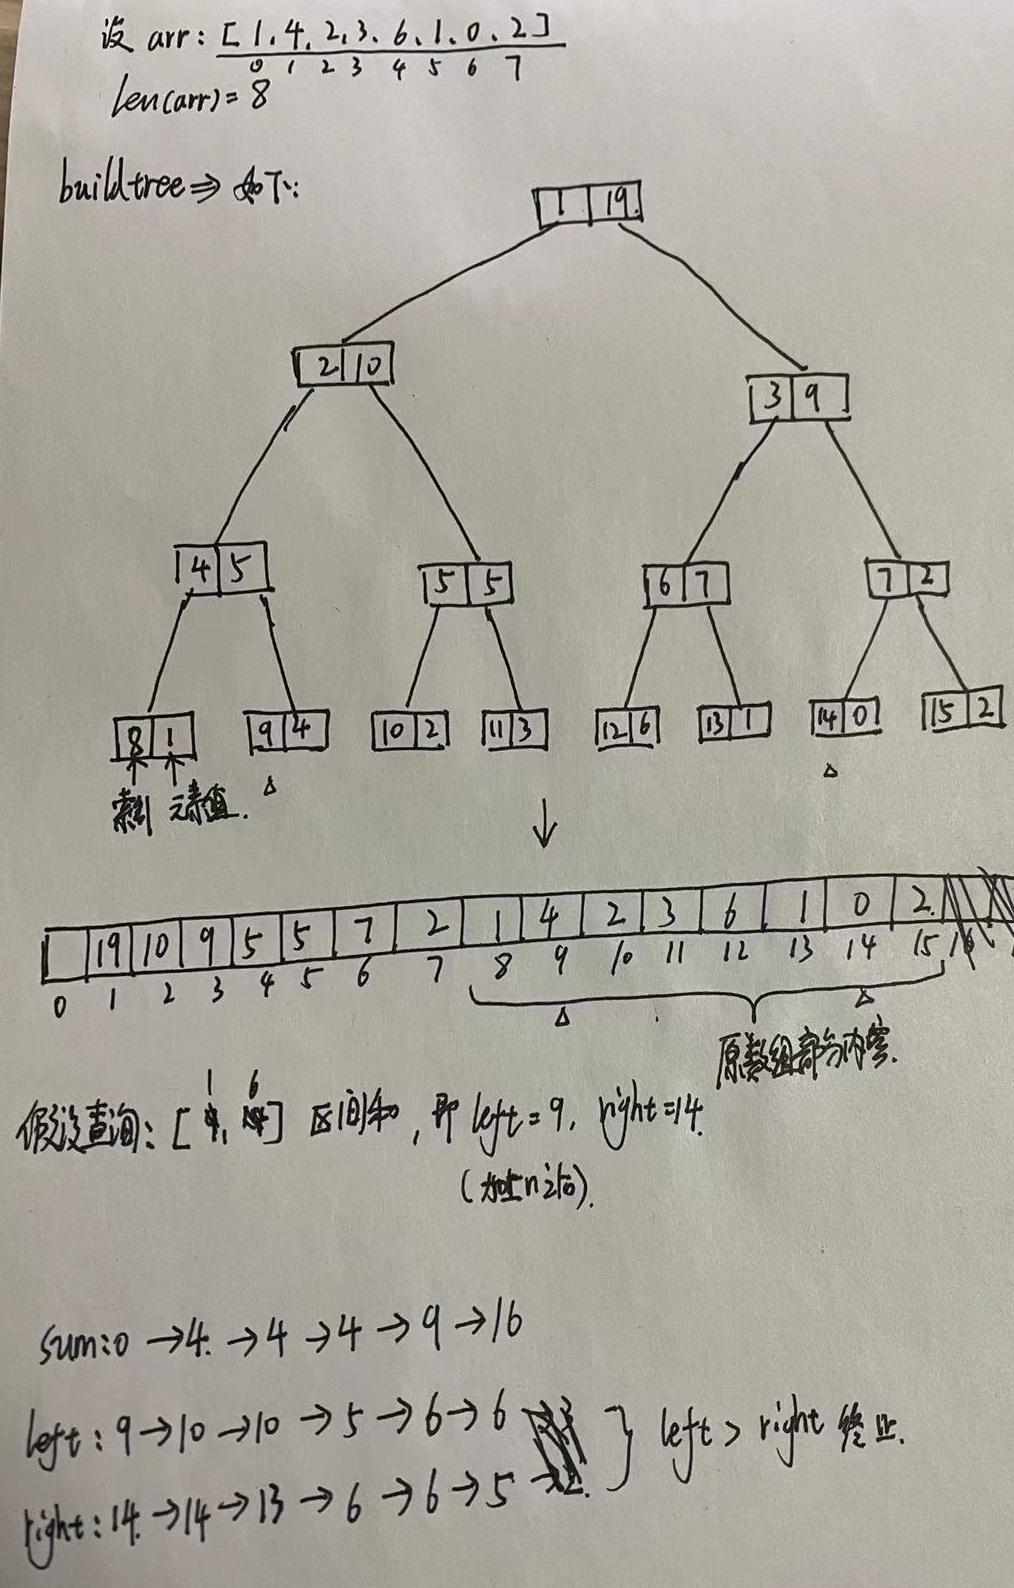 设 arr: [1,4,2,3,6,1,0,2]
0 1 2 3 4 5 6 7
len(arr)=8
buildtree⇒ 如下:
1 19
2 10
3 9
4 5 5 5 6 7 7 2
8 1 9 4 10 2 11 3 12 6 13 1 14 0 15 2
索引 元素值. △ △
↓
19 10 9 5 5 7 2 1 4 2 3 6 1 0 2
0 1 2 3 4 5 6 7 8 9 10 11 12 13 14 15
△ △
原数组部分内容.
1 6
假设查询: [ , ] 区间和, 即 left=9, right=14.
(加上n之后).
sum:0 →4. →4 →4 →9 →16
left: 9→10→10→5→6→6 } left > right 终止.
right: 14.→14→13→6→6→5